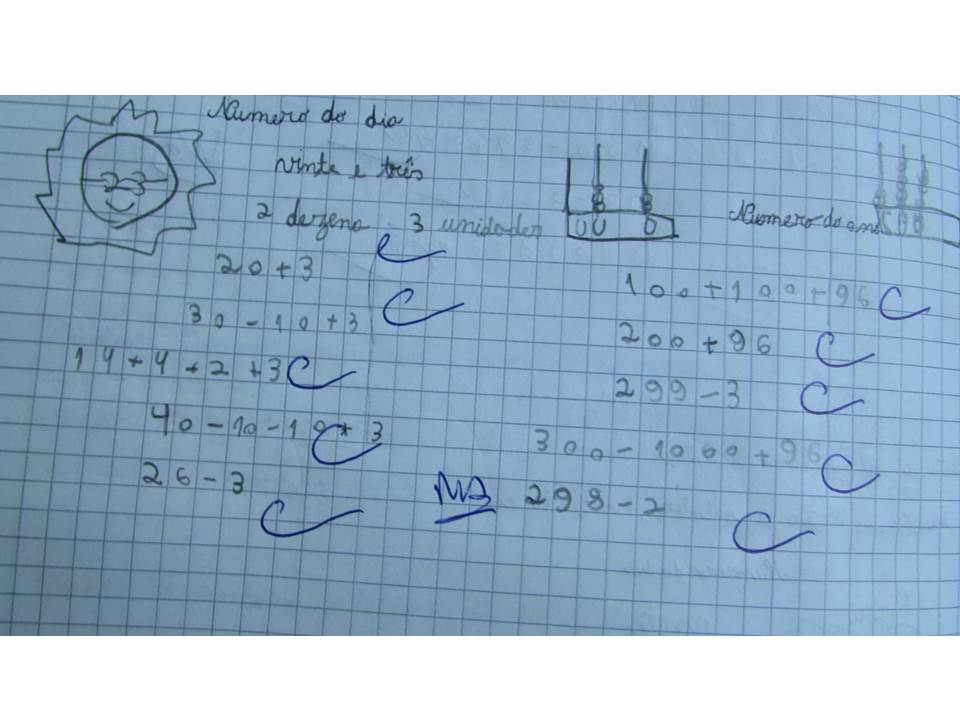 Numero do dia
vinte e três
2 dezena 3 unidades
20+3
30-10+3
14+4+2+3
40-10-10+3
26-3
Numero do ano
100+100+96
200+96
299-3
300-1000+96
298-2
MB